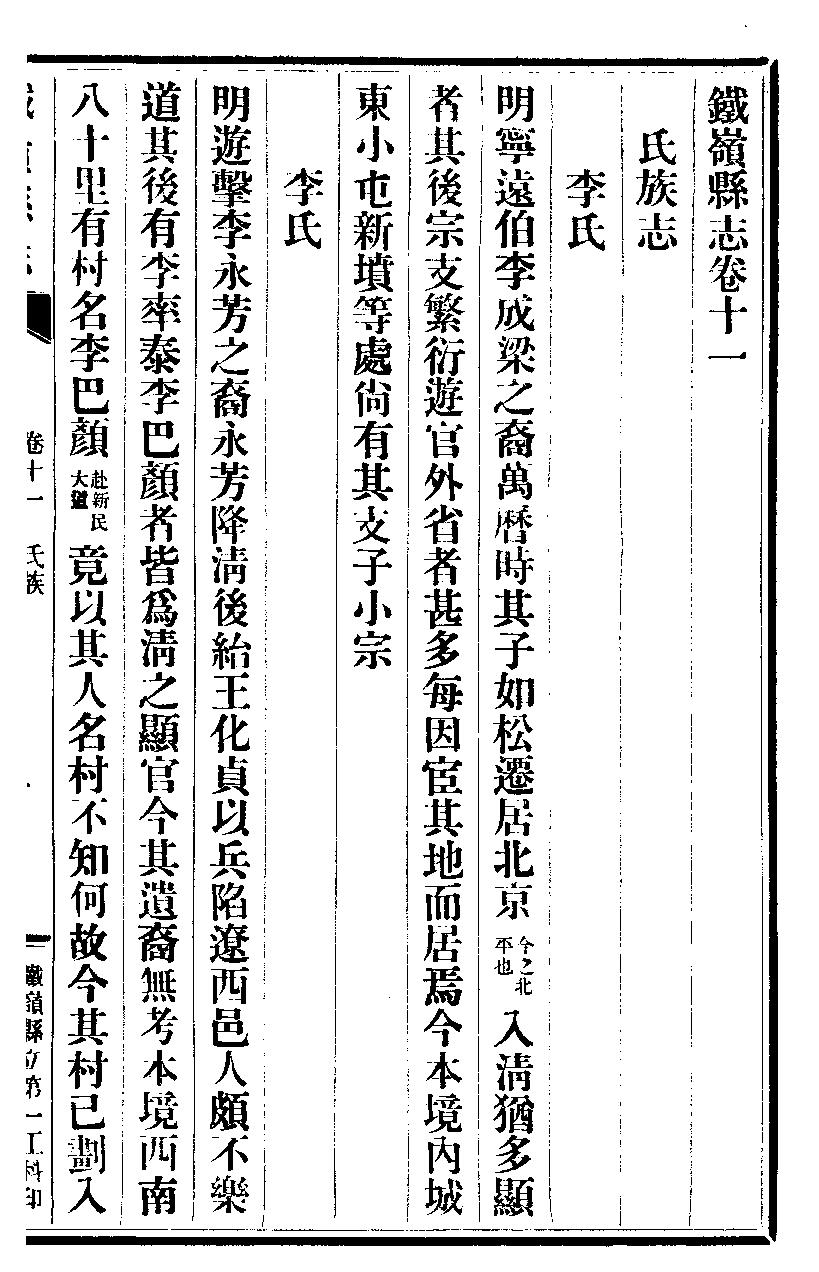 鐵嶺縣志卷十一
氏族志
李氏
明寧遠伯李成梁之裔萬曆時其子如松遷居北京今之北平也入淸猶多顯
者其後宗支繁衍遊官外省者甚多每因宦其地而居焉今本境內城
東小屯新墳等處尙有其支子小宗
李氏
明遊擊李永芳之裔永芳降淸後紿王化貞以兵陷遼西邑人頗不樂
道其後有李率泰李巴顏者皆爲淸之顯官今其遺裔無考本境西南
八十里有村名李巴顏赴新民大道竟以其人名村不知何故今其村已劃入
卷十一 氏族 一 鐵嶺縣立第一工科印